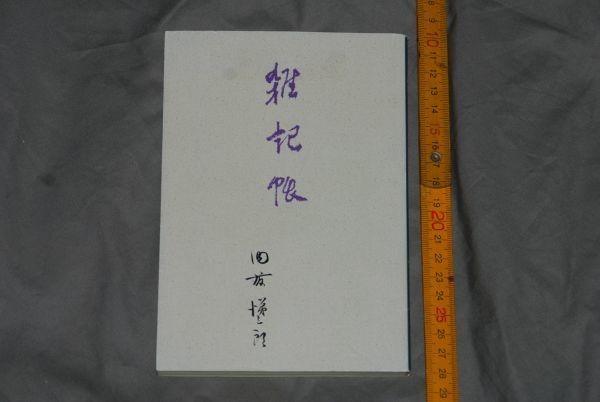 雑記帳
郎
8
9
10
11
12
13
14
15
16
17
18
19
20
21
22
23
24
25
26
27
28
29